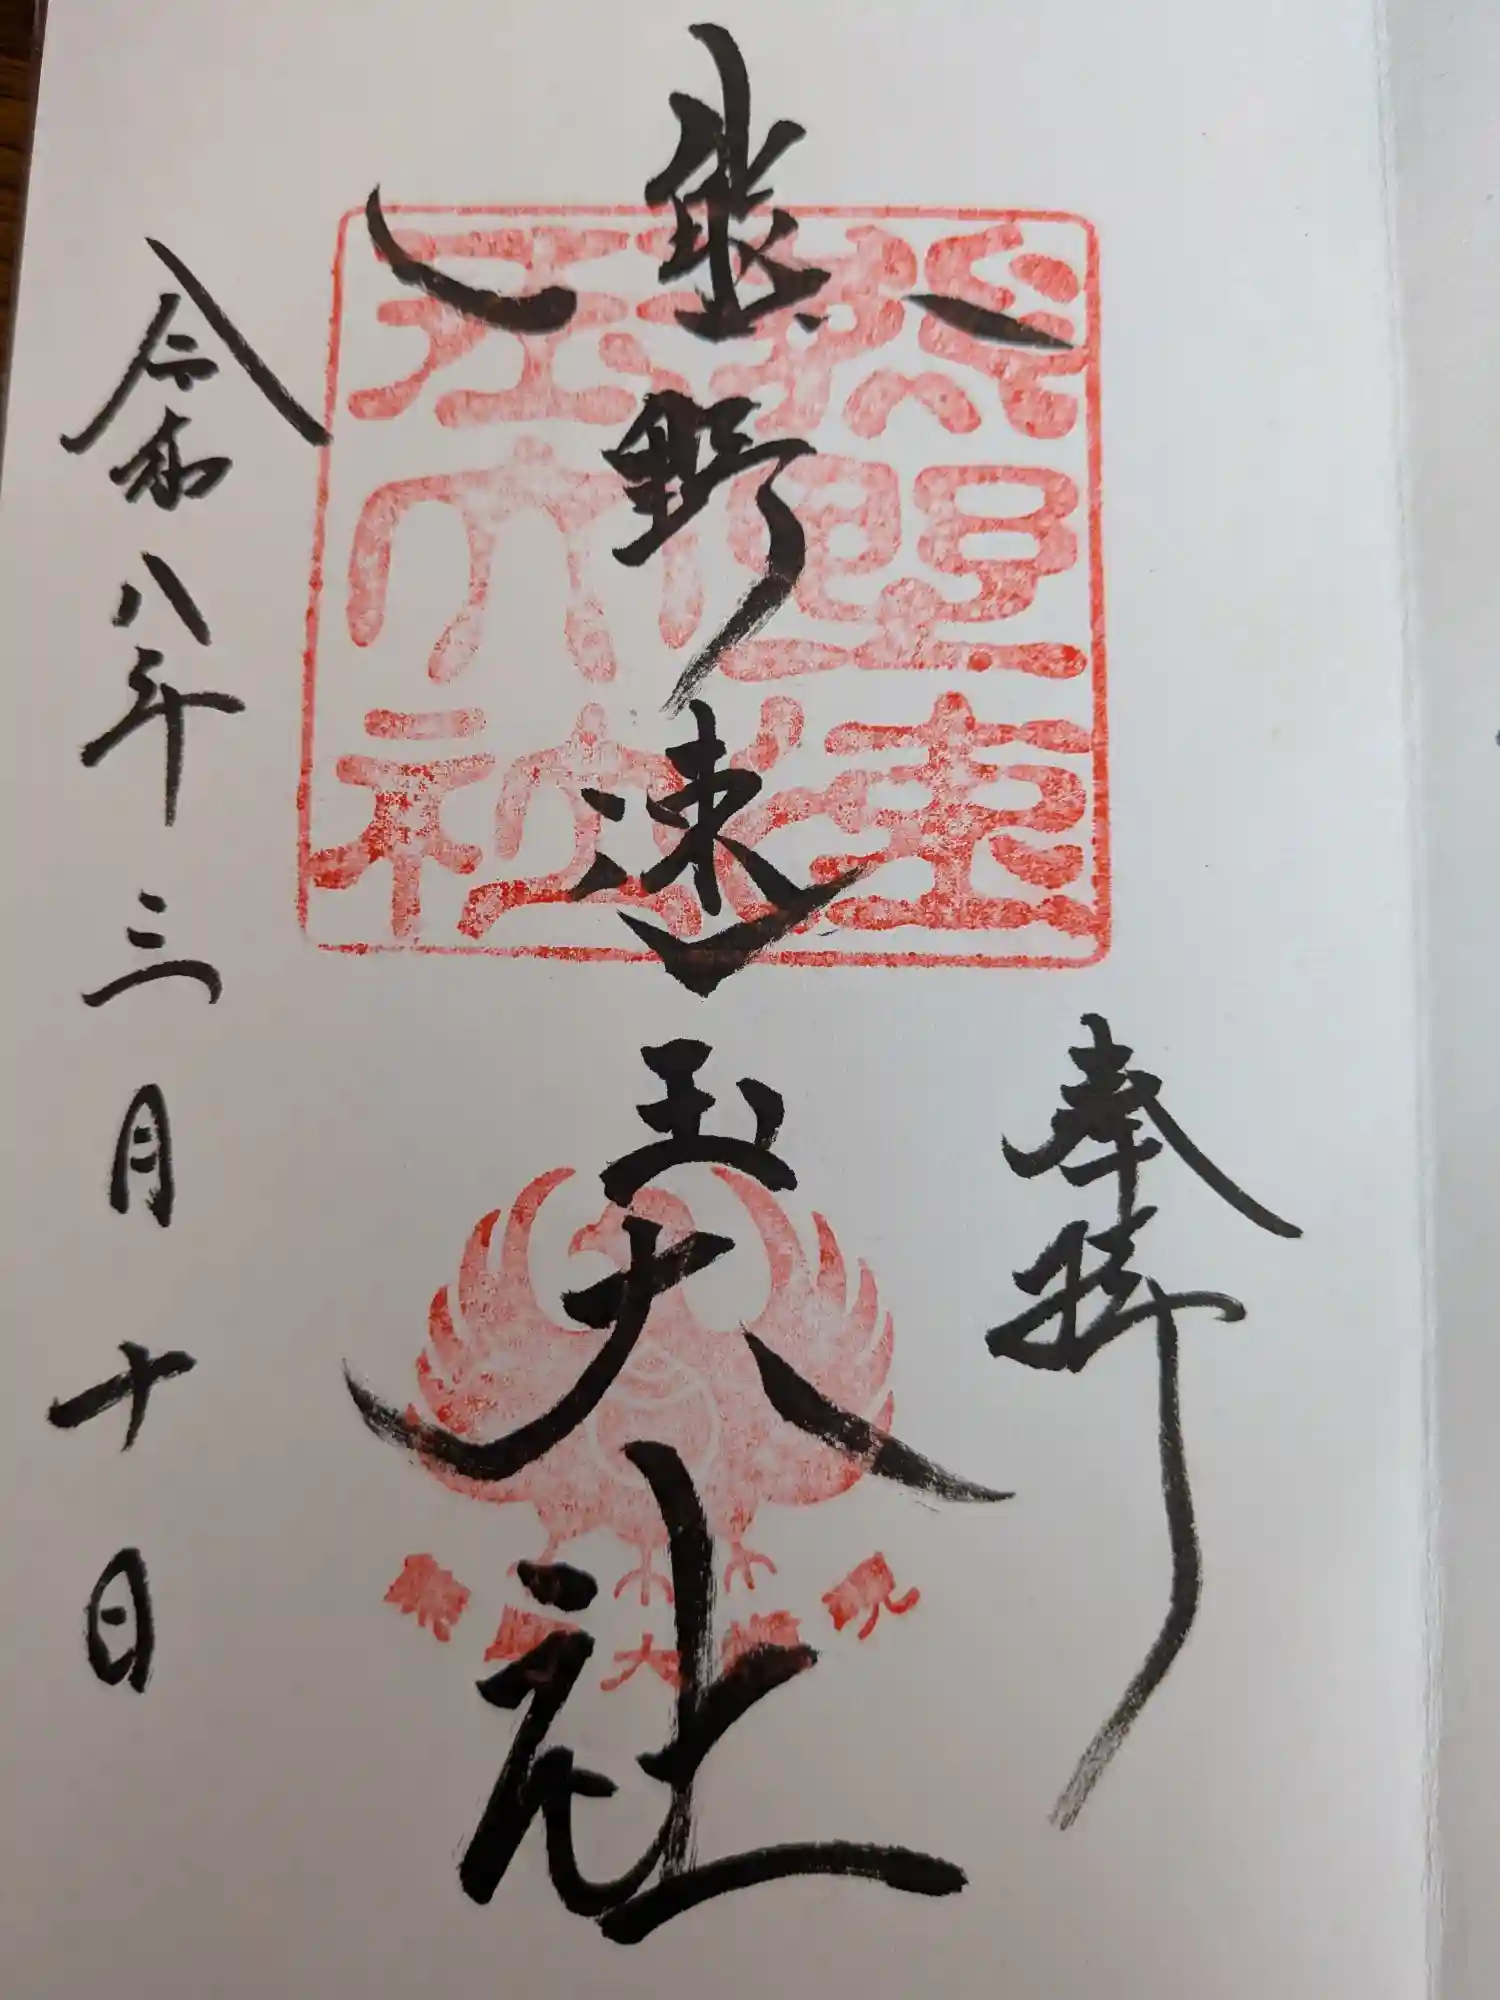 奉拝
熊野速玉大社
熊野速
玉大社
熊野大権現
令和八年三月十日